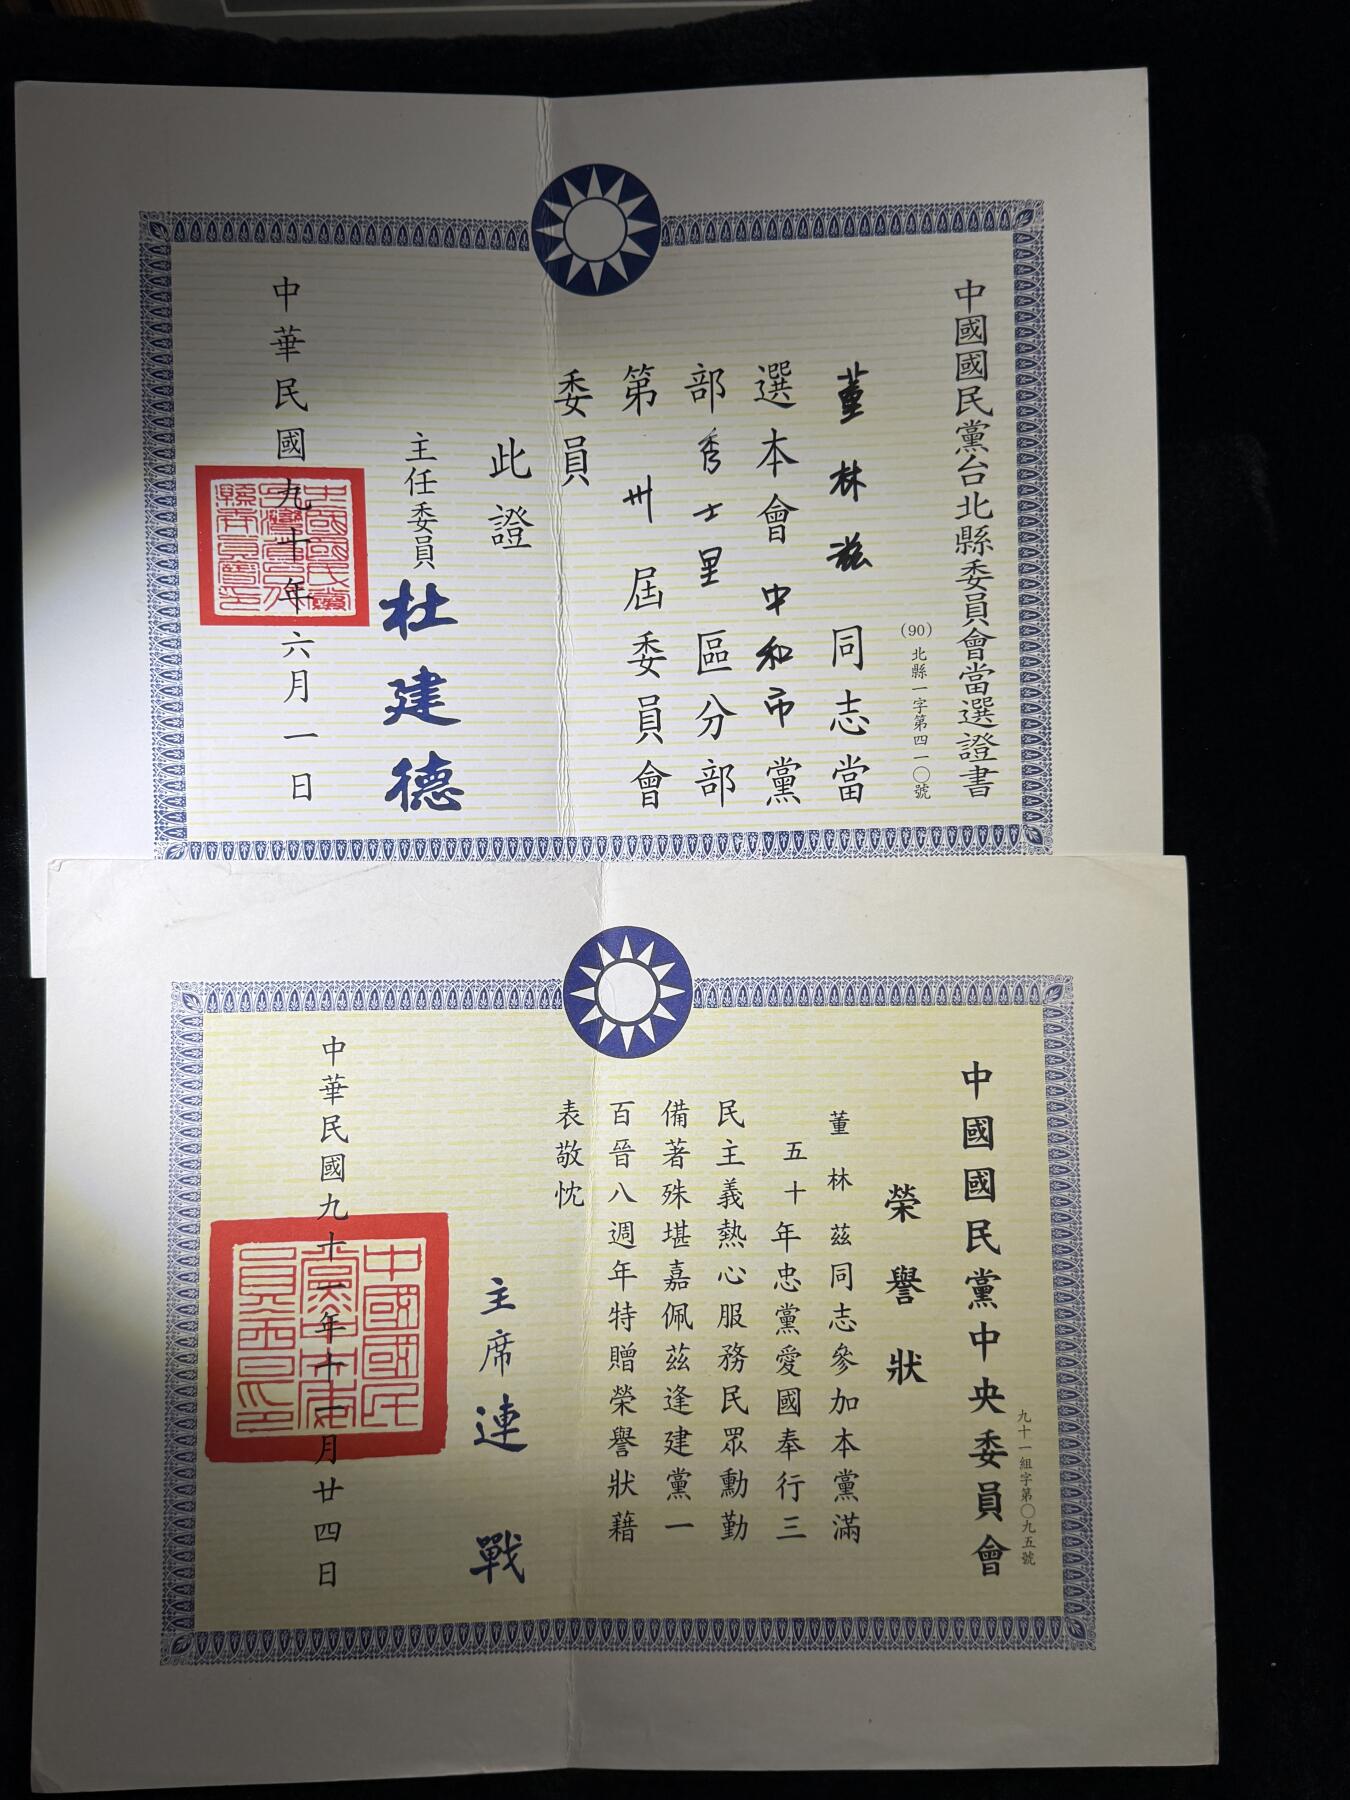 中國國民黨台北縣委員會當選證書
(90)北縣一字第四一〇號
董林茲同志當
選本會中和市黨
部秀士里區分部
第卅屆委員會
委員
此證
主任委員杜建德
中華民國九十年六月一日
中國國民黨中央委員會
九十一組字第〇九五號
榮譽狀
董林茲同志參加本黨滿
五十年忠黨愛國奉行三
民主義熱心服務民眾勳勤
備著殊堪嘉佩茲逢建黨一
百晉八週年特贈榮譽狀藉
表敬忱
主席連戰
中華民國九十一年十一月廿四日
中國國民
黨中央委
員會印